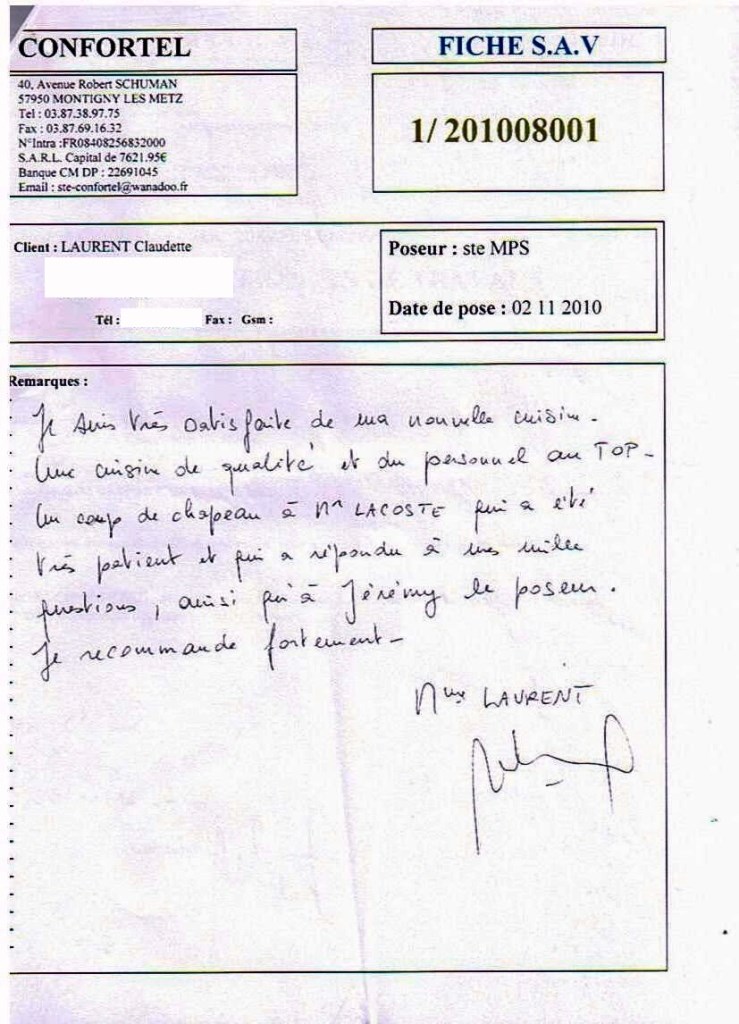 CONFORTEL
FICHE S.A.V
40, Avenue Robert SCHUMAN
57950 MONTIGNY LES METZ
Tel : 03.87.38.97.75
Fax : 03.87.69.16.32
N°Intra :FR08408256832000
S.A.R.L. Capital de 7621.95€
Banque CM DP : 22691045
Email : ste-confortel@wanadoo.fr
1/ 201008001
Client : LAURENT Claudette
Tél : Fax : Gsm :
Poseur : ste MPS
Date de pose : 02 11 2010
Remarques :
Je suis très satisfaite de ma nouvelle cuisine.
Une cuisine de qualité et du personnel au TOP-
Un coup de chapeau à Mr LACOSTE qui a été
très patient et qui a répondu à mes mille
questions, ainsi qu'à Jérémy le poseur.
Je recommande fortement-
Mme LAURENT